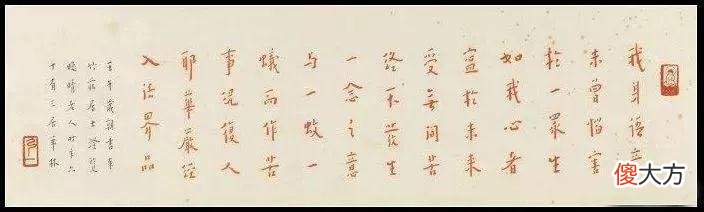 我身語意
未曾惱害
於一眾生
如我心者
寧於未來
受無間苦
終不發生
一念之意
与一蚊一
蟻而作苦
事況復人
耶華嚴經
入法界品
壬午歲書奉
居士澄覽
晚晴老人時年六
十有三居林
傻大方